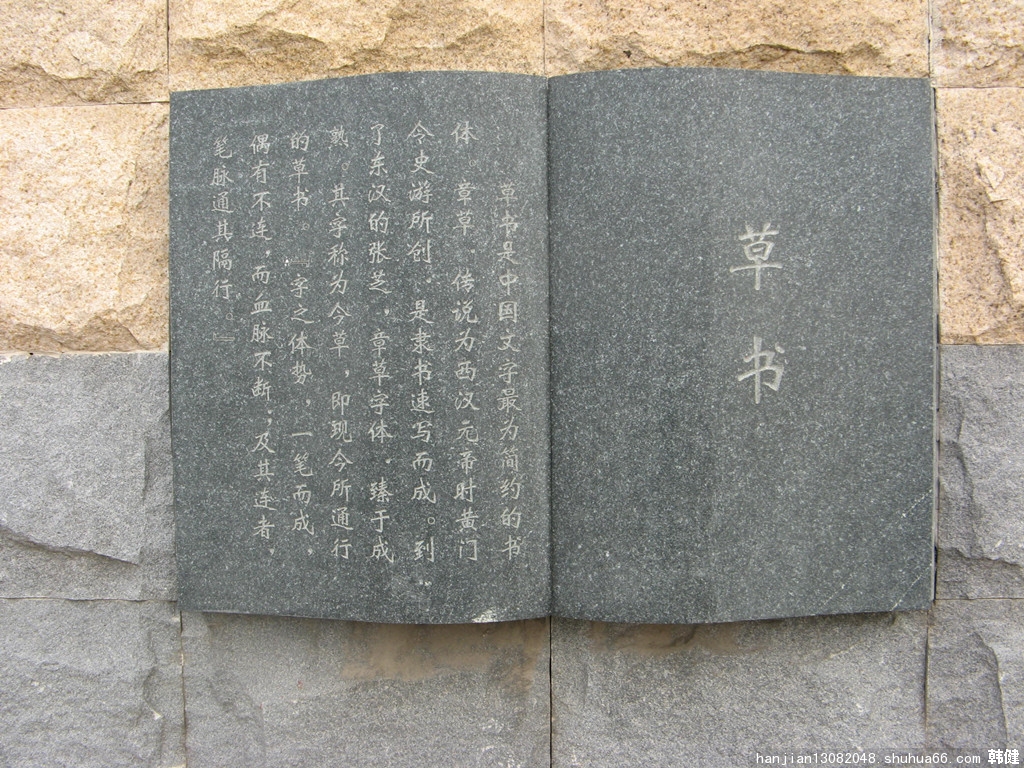 草书
草书是中国文字最为简约的书
体。章草，传说为西汉元帝时黄门
令史游所创，是隶书速写而成。到
了东汉的张芝，章草字体，臻于成
熟。其字称为今草，即现今所通行
的草书。『字之体势，一笔而成，
偶有不连，而血脉不断，及其连者，
笔脉通其隔行。』
hanjian13082048 shuhua66.com 韩健